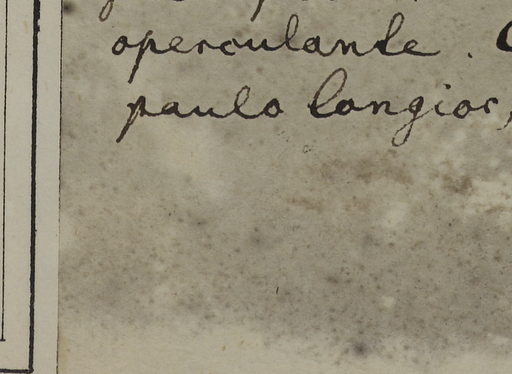 operculante.
paulo longior,